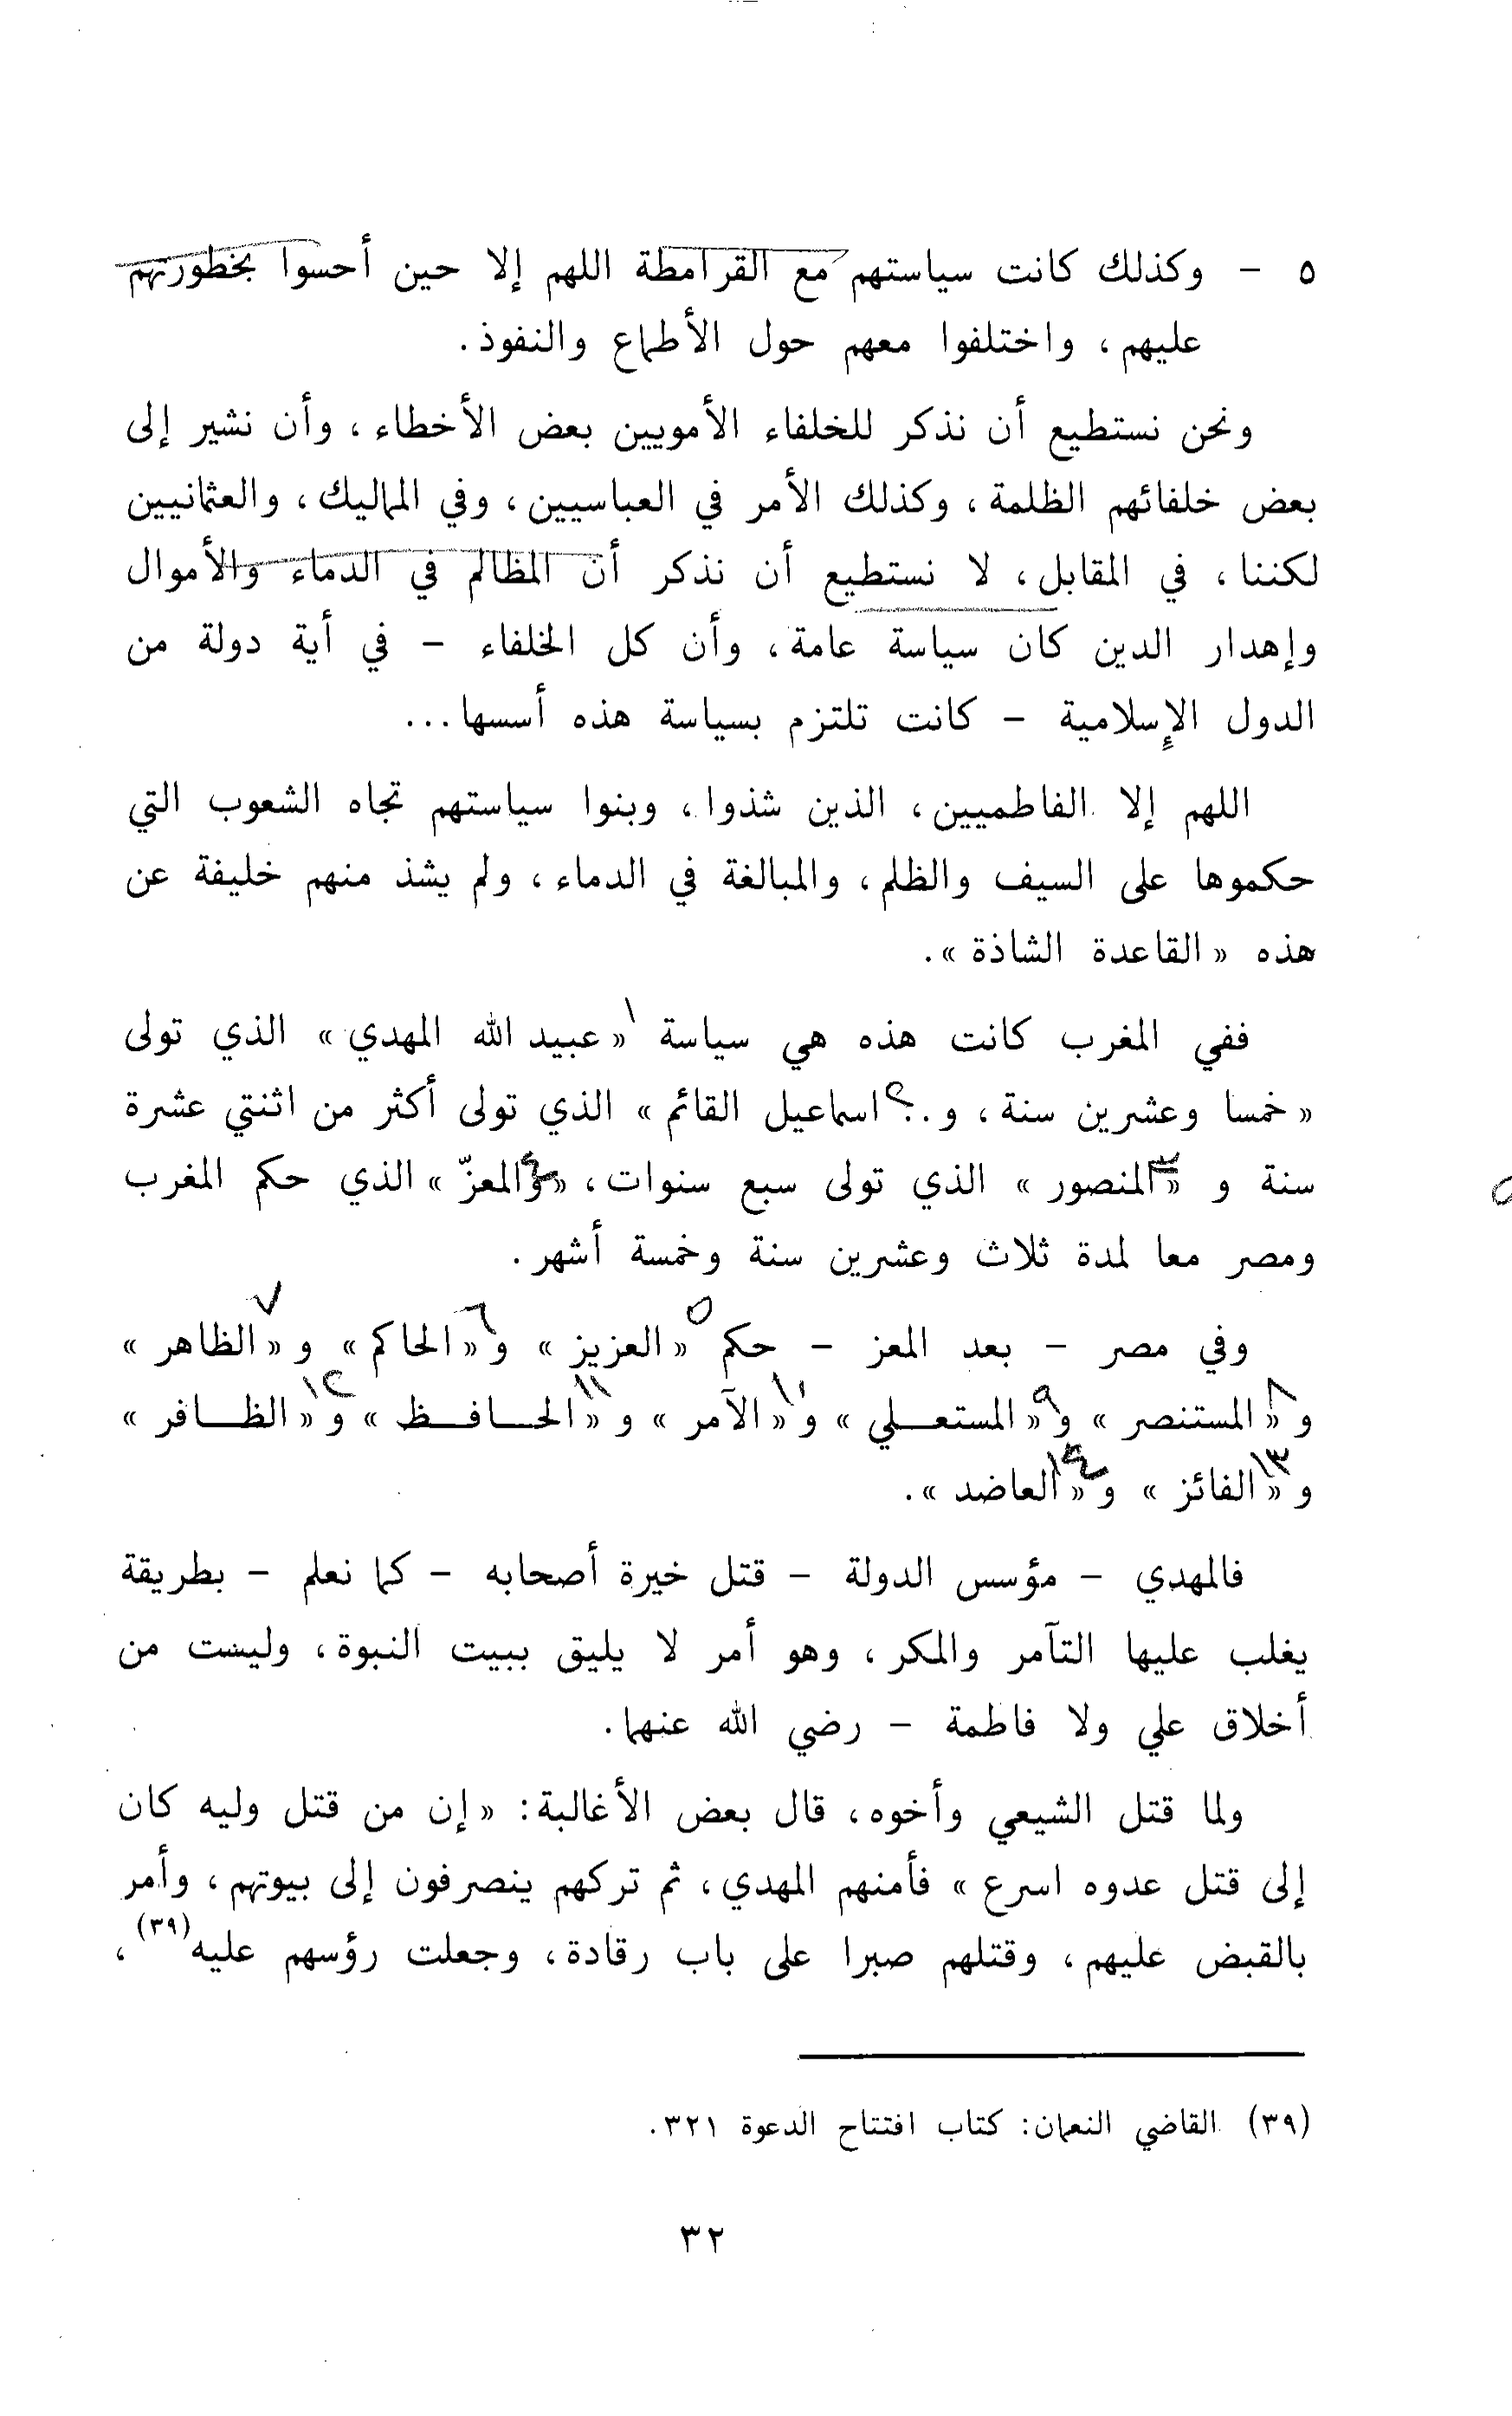 ٥ - وكذلك كانت سياستهم مع القرامطة اللهم إلا حين أحسوا بخطورتهم
عليهم، واختلفوا معهم حول الأطماع والنفوذ.
ونحن نستطيع أن نذكر للخلفاء الأمويين بعض الأخطاء، وأن نشير إلى
بعض خلفائهم الظلمة، وكذلك الأمر في العباسيين، وفي المماليك، والعثمانيين
لكننا، في المقابل، لا نستطيع أن نذكر أن المظالم في الدماء والأموال
وإهدار الدين كان سياسة عامة، وأن كل الخلفاء - في أية دولة من
الدول الإسلامية - كانت تلتزم بسياسة هذه أسسها...
اللهم إلا الفاطميين، الذين شذوا، وبنوا سياستهم تجاه الشعوب التي
حكموها على السيف والظلم، والمبالغة في الدماء، ولم يشذ منهم خليفة عن
هذه «القاعدة الشاذة».
ففي المغرب كانت هذه هي سياسة ١ «عبيد الله المهدي» الذي تولى
«خمسا وعشرين سنة، و اسماعيل القائم» الذي تولى أكثر من اثنتي عشرة
سنة و «المنصور» الذي تولى سبع سنوات، «والمعزّ» الذي حكم المغرب
ومصر معا لمدة ثلاث وعشرين سنة وخمسة أشهر.
وفي مصر - بعد المعز - حكم ٥ «العزيز» و ٦ «الحاكم» و ٧ «الظاهر»
و ٨ «المستنصر» و ٩ «المستعلي» و ١٠ «الآمر» و ١١ «الحافظ» و ١٢ «الظافر»
و ١٣ «الفائز» و ١٤ «العاضد».
فالمهدي - مؤسس الدولة - قتل خيرة أصحابه - كما نعلم - بطريقة
يغلب عليها التآمر والمكر، وهو أمر لا يليق ببيت النبوة، وليست من
أخلاق علي ولا فاطمة - رضي الله عنهما.
ولما قتل الشيعي وأخوه، قال بعض الأغالبة: «إن من قتل وليه كان
إلى قتل عدوه اسرع» فأمنهم المهدي، ثم تركهم ينصرفون إلى بيوتهم، وأمر
بالقبض عليهم، وقتلهم صبرا على باب رقادة، وجعلت رؤسهم عليه(٣٩)،
(٣٩) القاضي النعمان: كتاب افتتاح الدعوة ٣٢١.
٣٢